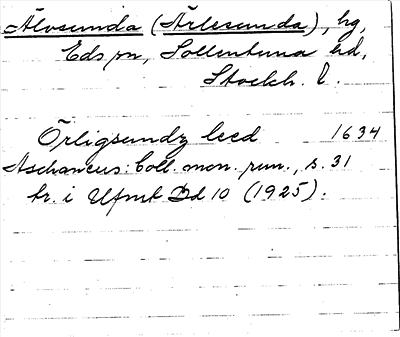 Älvsunda (Ärlesunda), hg,
Eds sn, Sollentuna hd,
Stockh. l.
Örligsundz leed 1634
Aschaneus: Coll. mon. run., s. 31
tr. i Ufmt Bd 10 (1925).